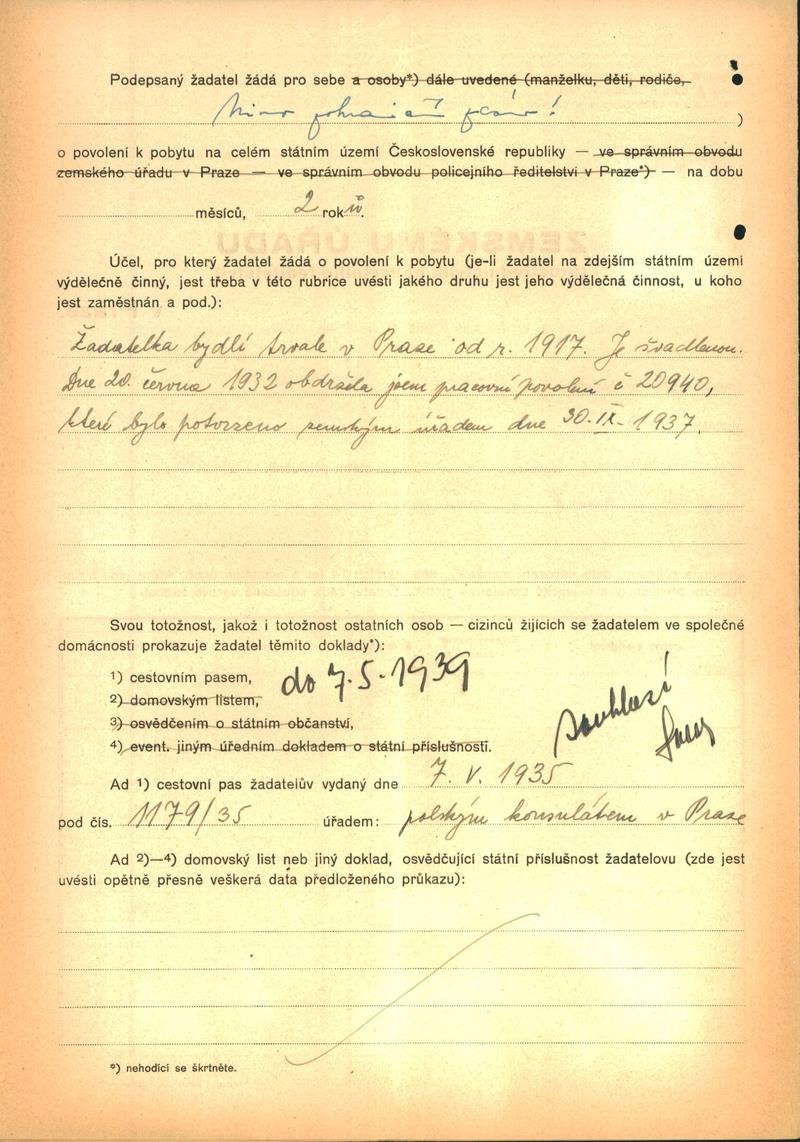 Podepsaný žadatel žádá pro sebe a osoby*) dále uvedené (manželku, děti, rodiče,
)
o povolení k pobytu na celém státním území Československé republiky — ve správním obvodu
zemského úřadu v Praze — ve správním obvodu policejního ředitelství v Praze*) — na dobu
měsíců, 2 roků.
Účel, pro který žadatel žádá o povolení k pobytu (je-li žadatel na zdejším státním území
výdělečně činný, jest třeba v této rubrice uvésti jakého druhu jest jeho výdělečná činnost, u koho
jest zaměstnán a pod.):
Žadatelka bydlí trvale v Praze od r. 1917. Je švadlenou.
Dne 20. června 1932 obdržela jsem pracovní povolení č 20940,
které bylo potvrzeno zemským úřadem dne 30. IX. 1937.
Svou totožnost, jakož i totožnost ostatních osob — cizinců žijících se žadatelem ve společné
domácnosti prokazuje žadatel těmito doklady*):
1) cestovním pasem, do 7.5.1939
2) domovským listem,
3) osvědčením o státním občanství,
4) event. jiným úředním dokladem o státní příslušnosti.
souhlasí
Ad 1) cestovní pas žadatelův vydaný dne 7. V. 1935
pod čís. 1179/35 úřadem: polským konsulátem v Praze
Ad 2)—4) domovský list neb jiný doklad, osvědčující státní příslušnost žadatelovu (zde jest
uvésti opětně přesně veškerá data předloženého průkazu):
*) nehodící se škrtněte.